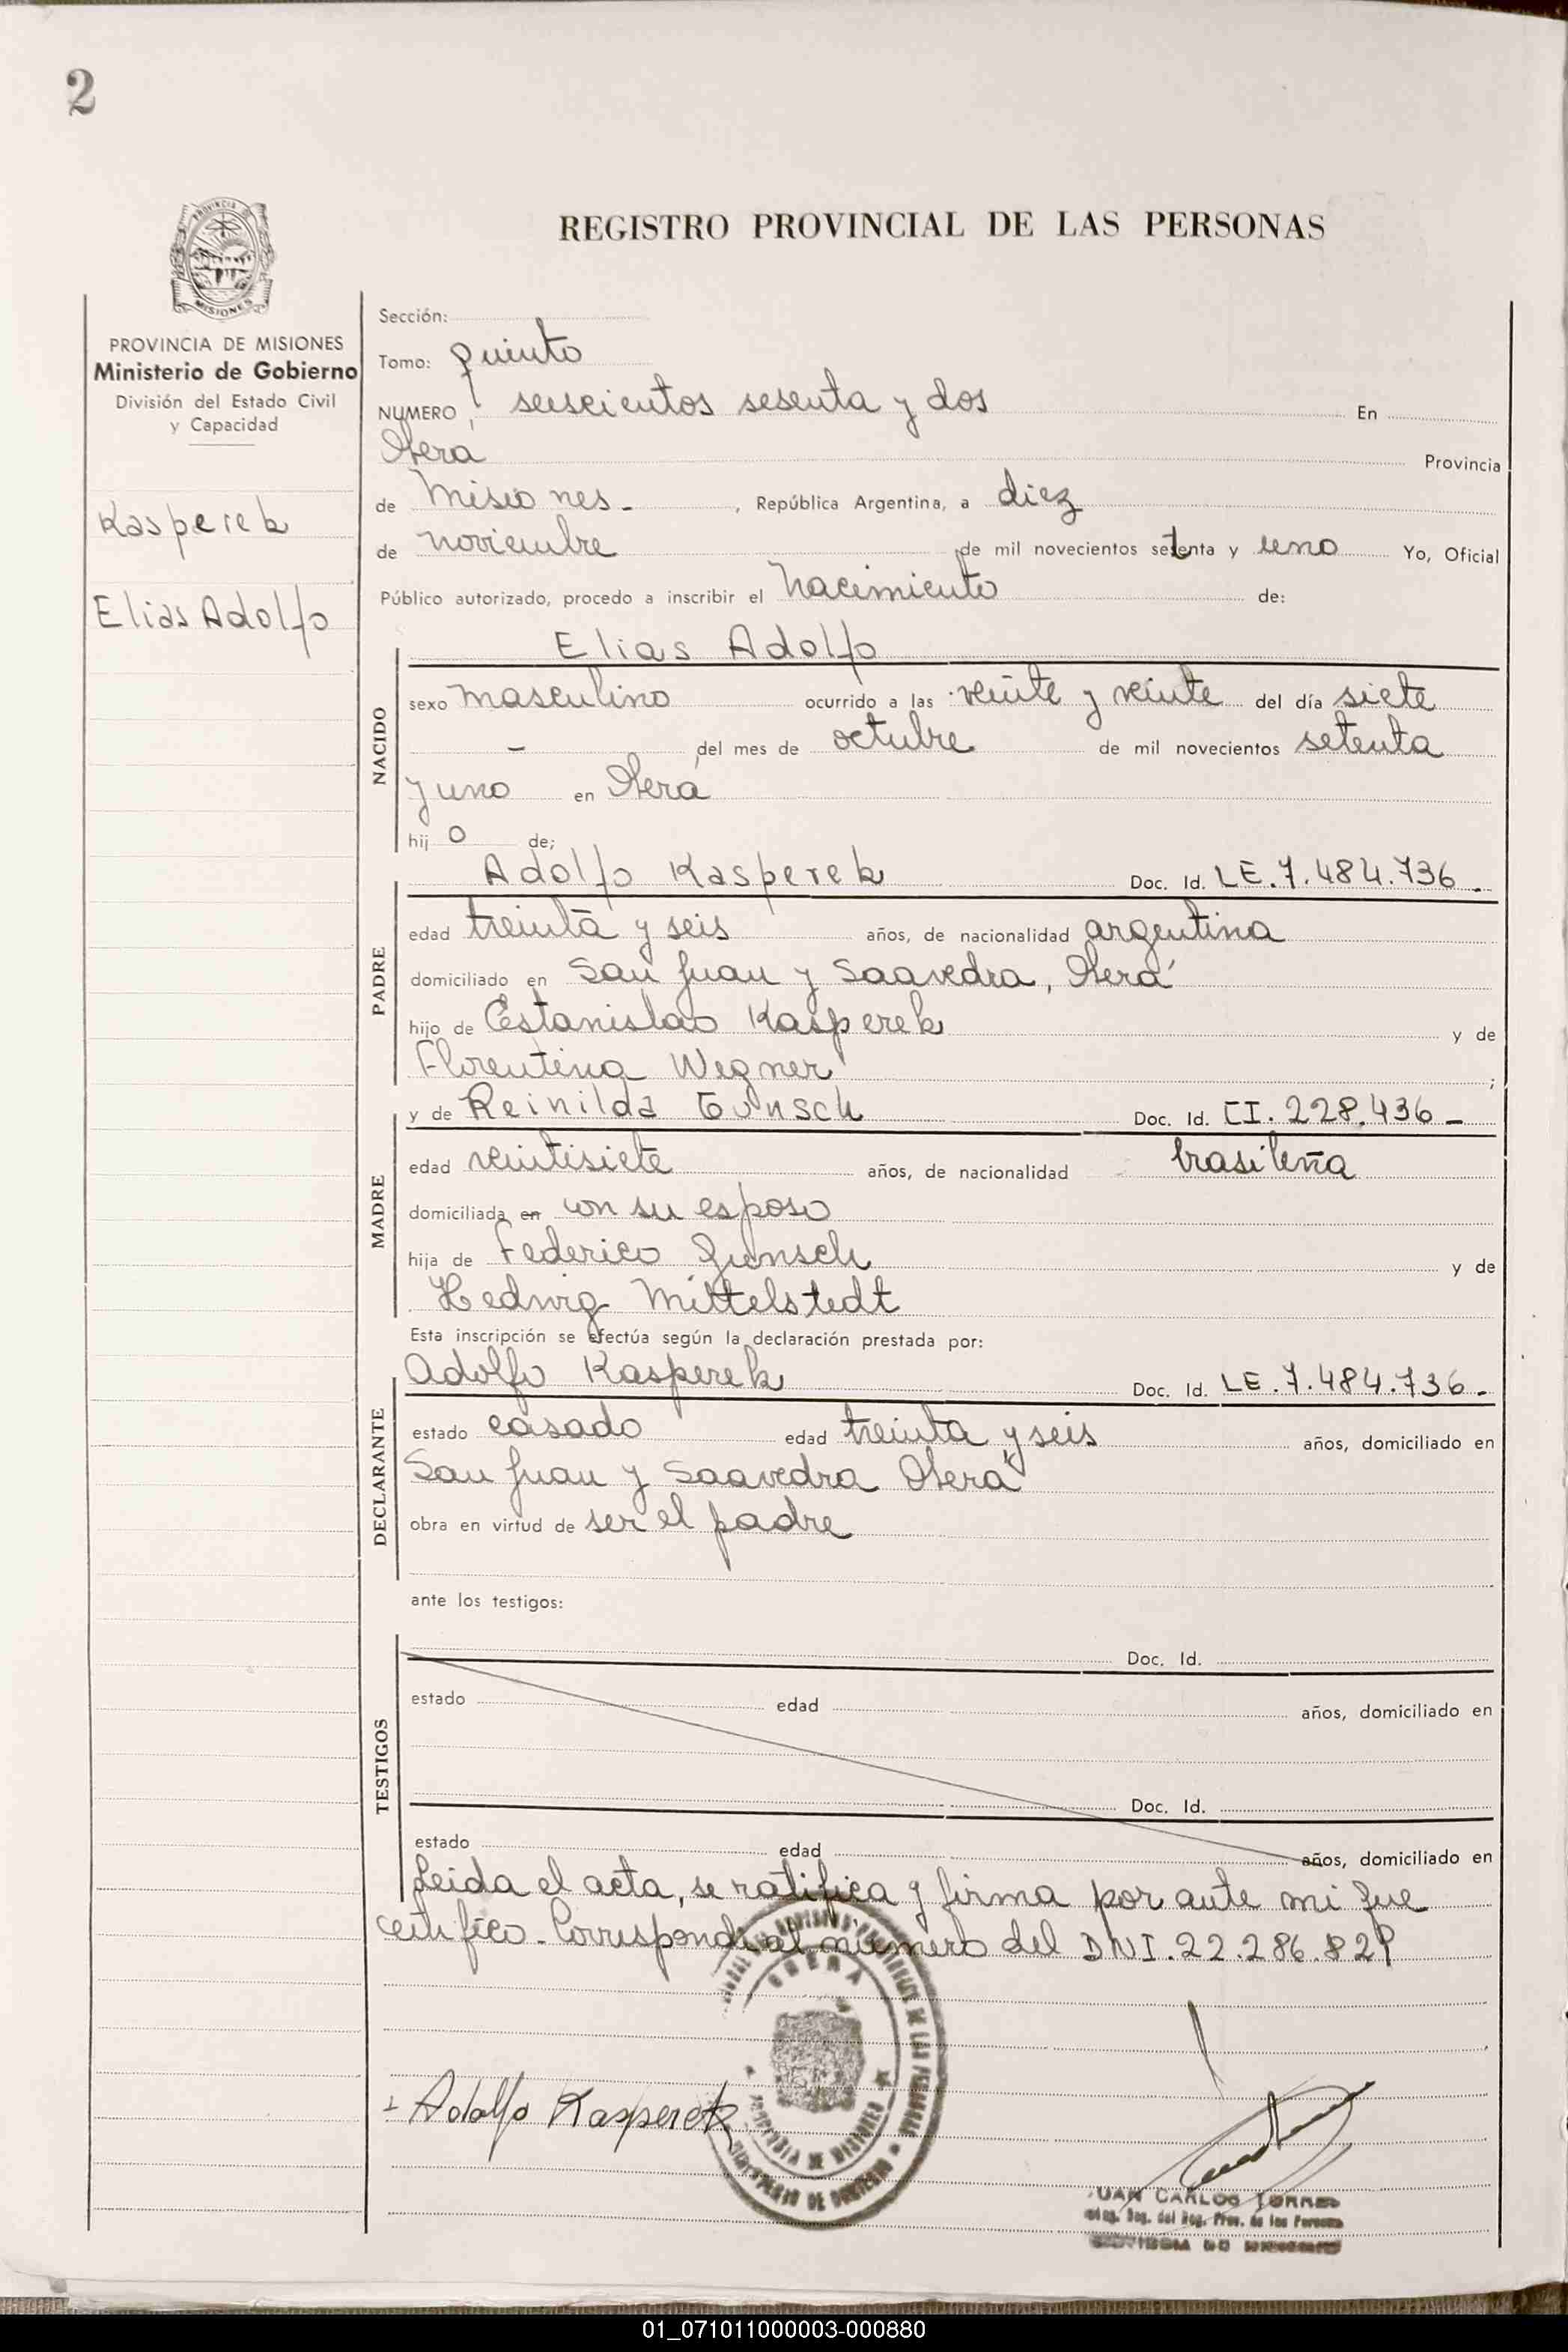 2
REGISTRO PROVINCIAL DE LAS PERSONAS
MISIONES
PROVINCIA DE MISIONES
Ministerio de Gobierno
División del Estado Civil
y Capacidad
Kasperek
Elias Adolfo
Sección:
Tomo: quinto
NUMERO seiscientos sesenta y dos En
Oberá Provincia
de Misiones - , República Argentina, a diez
de noviembre de mil novecientos setenta y uno Yo, Oficial
Público autorizado, procedo a inscribir el nacimiento de:
Elias Adolfo
NACIDO
sexo masculino ocurrido a las veinte y veinte del día siete
- del mes de octubre de mil novecientos setenta
y uno en Oberá
hijo de;
PADRE
Adolfo Kasperek Doc. Id. LE.7.484.736.
edad treinta y seis años, de nacionalidad argentina
domiciliado en San Juan y Saavedra, Oberá
hijo de Estanislao Kasperek y de
Florentina Wegner ;
MADRE
y de Reinilda Gunsch Doc. Id. CI.228.436-
edad veintisiete años, de nacionalidad brasileña
domiciliada en con su esposo
hija de Federico Gunsch y de
Hedwig Mittelstedt
Esta inscripción se efectúa según la declaración prestada por:
DECLARANTE
Adolfo Kasperek Doc. Id. LE.7.484.736.
estado casado edad treinta y seis años, domiciliado en
San Juan y Saavedra Oberá
obra en virtud de ser el padre
ante los testigos:
TESTIGOS
Doc. Id.
estado edad años, domiciliado en
Doc. Id.
estado edad años, domiciliado en
Leida el acta, se ratifica y firma por ante mi que
certifico. Corresponde al número del DNI.22.286.829
OBERA
PROVINCIA DE MISIONES
MINISTERIO DE GOBIERNO
Adolfo Kasperek
JUAN CARLOS TORRES
del Reg. Prov. de las Personas
01_071011000003-000880